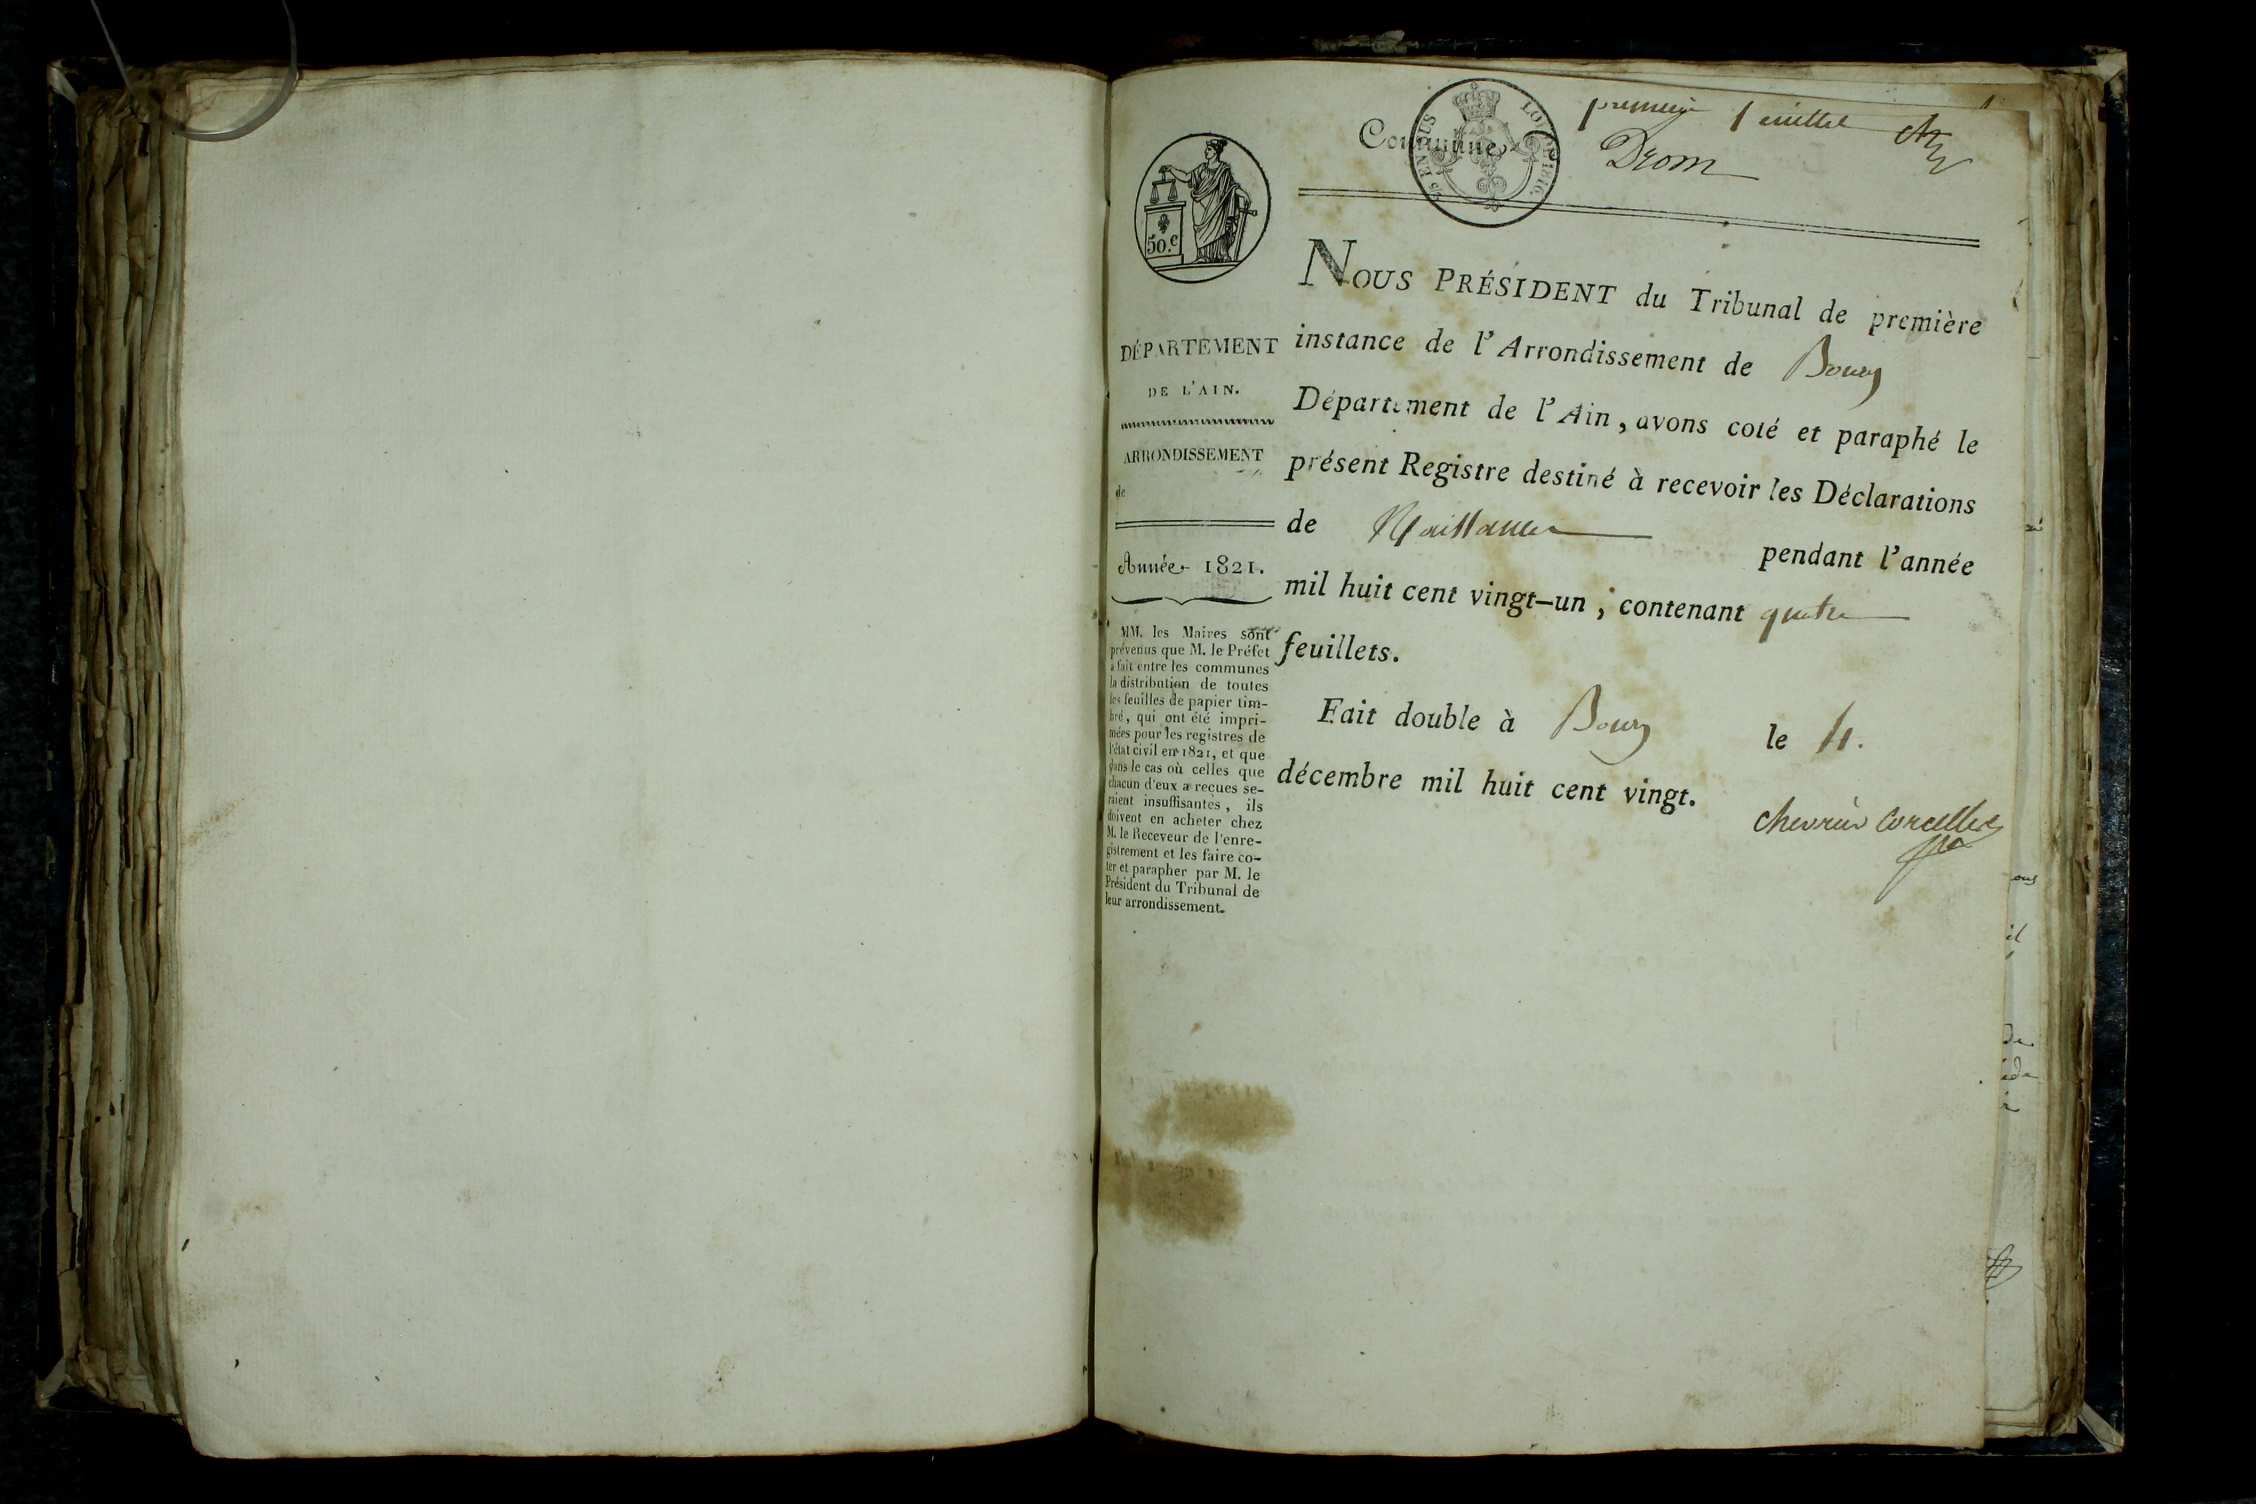 premier feuillet
Commune Drom
25 EN SUS LOI DE 1816.
50.c
NOUS PRÉSIDENT du Tribunal de première
instance de l'Arrondissement de Bourg
Département de l'Ain, avons coté et paraphé le
présent Registre destiné à recevoir les Déclarations
de Naissances pendant l'année
mil huit cent vingt-un, contenant quatre
feuillets.
Fait double à Bourg le 4.
décembre mil huit cent vingt.
chevrier Corcelles
DÉPARTEMENT
DE L'AIN.
ARRONDISSEMENT
de
Année 1821.
MM. les Maires sont
prévenus que M. le Préfet
a fait entre les communes
la distribution de toutes
les feuilles de papier tim-
bré, qui ont été impri-
mées pour les registres de
l'état civil en 1821, et que
dans le cas où celles que
chacun d'eux a reçues se-
raient insuffisantes, ils
doivent en acheter chez
M. le Receveur de l'enre-
gistrement et les faire co-
ter et parapher par M. le
Président du Tribunal de
leur arrondissement.